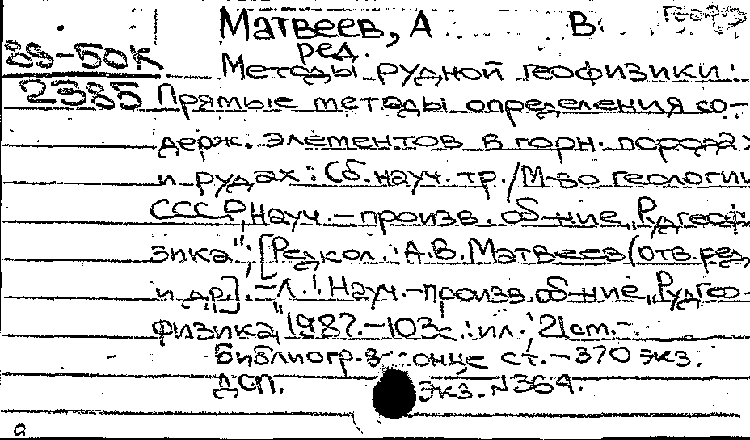 Матвеев, А В. Геофиз
ред.
88-50К
2385
Методы рудной геофизики:
Прямые методы определения со-
держ. элементов в горн. породах
и рудах: Сб. науч. тр./М-во геологии
СССР, Науч.-произв. об-ние „Рудгеоф
зика"; [Редкол.: А.В. Матвеев (отв. ред.
и др.]. - Л.: Науч.-произв. об-ние „Рудгео-
физика", 1987. - 103с.: ил.; 21 cm. -
Библиогр. в конце ст. - 370 экз.
ДСП. экз. № 364.
а